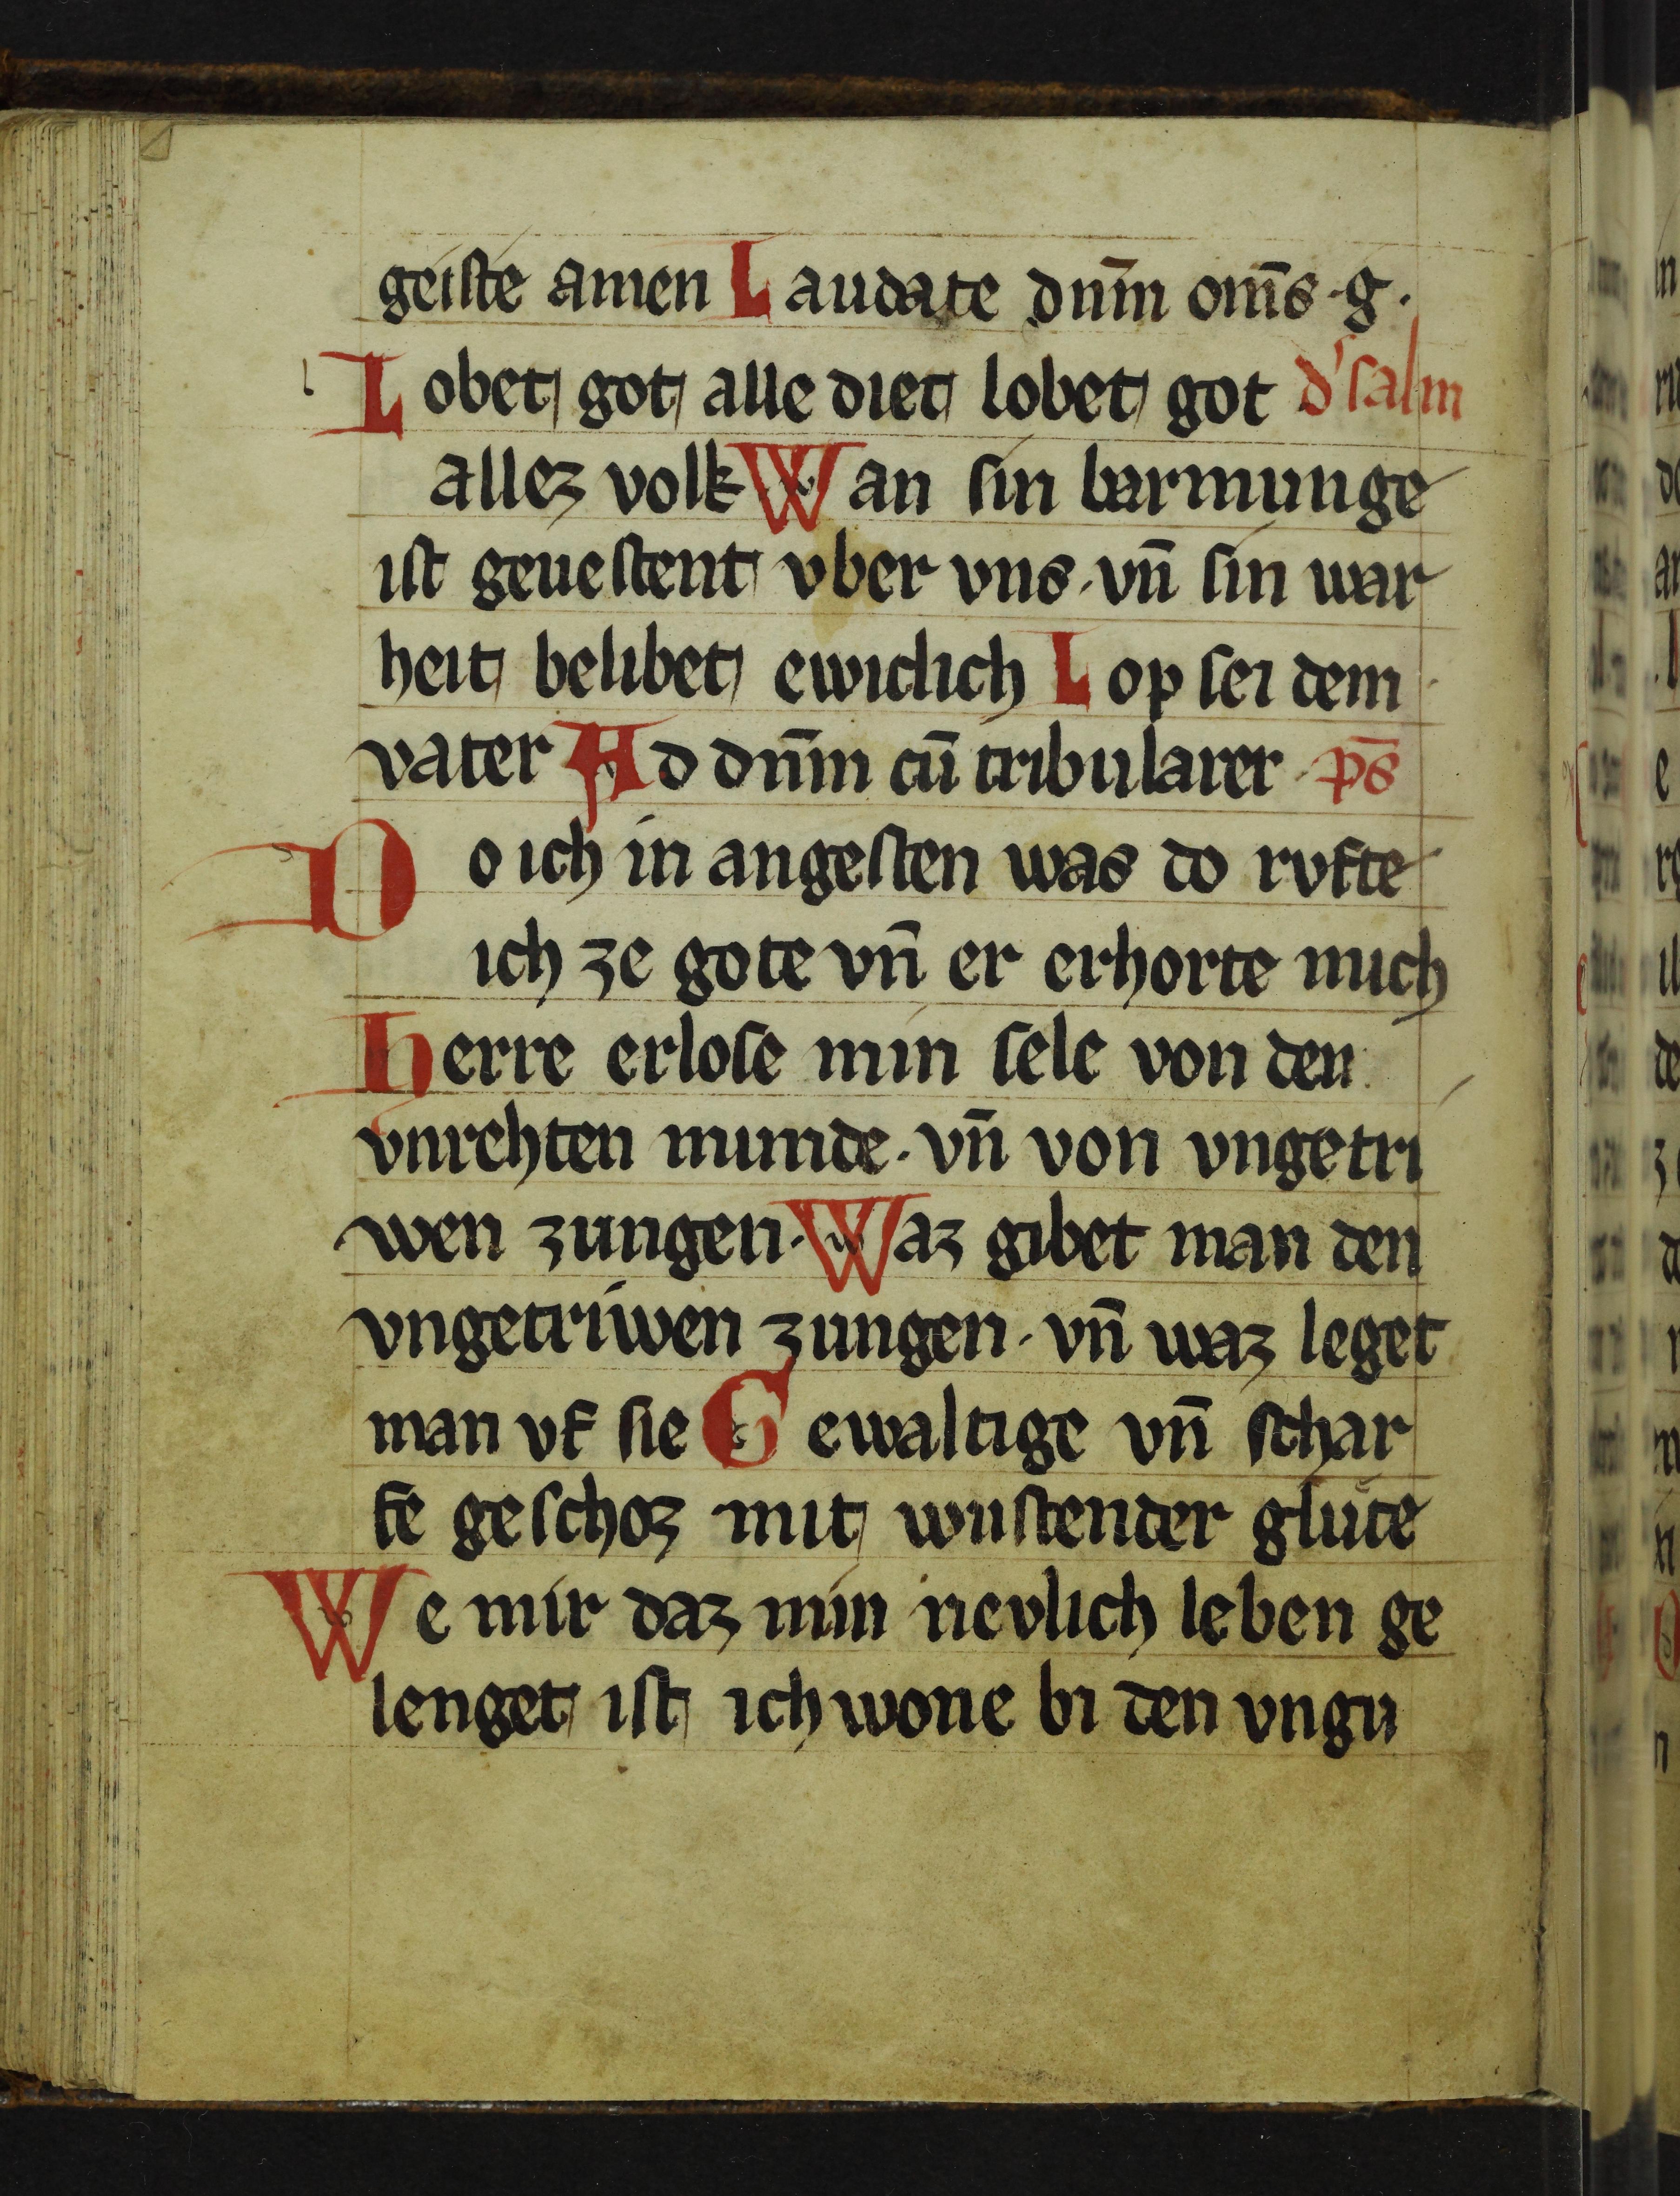 geiſte amen Laudate dnm̄ om̄s · g ·
Lobet got alle diet lobet got d' ſalm
allez volk Wan ſin barmunge
iſt geueſtent vber vns · vn̄ ſin war
heit belibet ewiclich Lop ſei dem
vater Ad dnm̄ cū tribularer · ps̄
Do ich in angeſten was do rvfte
ich ze gote vn̄ er erhorte mich
Herre erloſe min ſele von den
vnrehten munde · vn̄ von vngetri
wen zungen · Waz gibet man den
vngetriwen zungen · vn̄ waz leget
man vf ſie Gewaltige vn̄ ſchar
fe geſchoz mit wuſtender glute
We mir daz min nevlich leben ge
lenget iſt ich wone bi den vngu